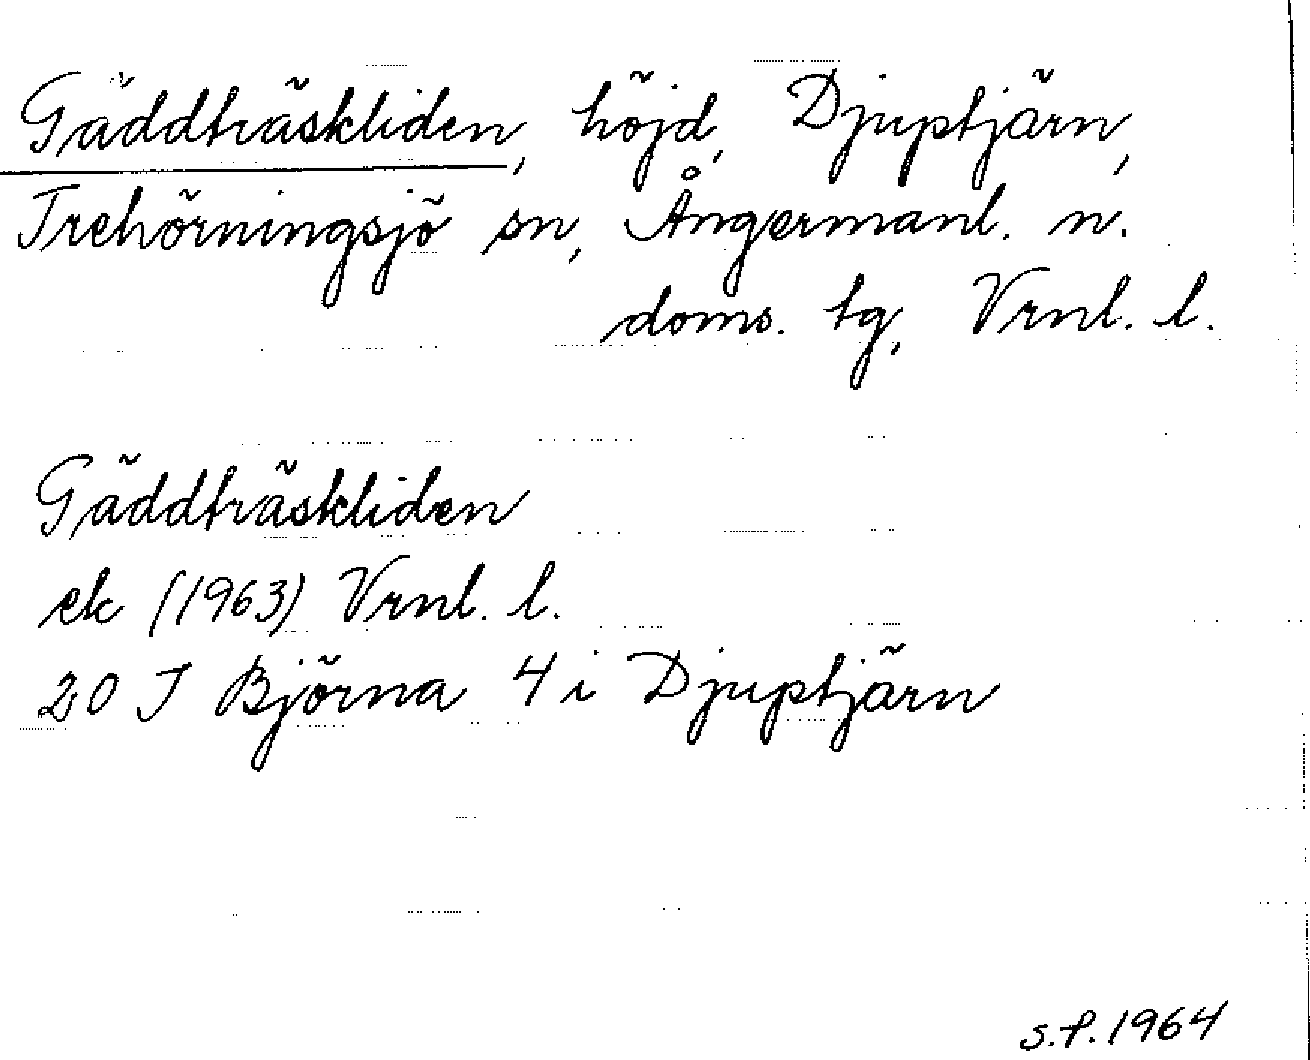 Gäddträskliden, höjd, Djuptjärn,
Trehörningsjö sn, Ångermanl. n.
doms. tg, Vrnl. l.
Gäddträskliden
ek (1963) Vrnl. l.
20 J Björna 4 i Djuptjärn
S.P. 1964